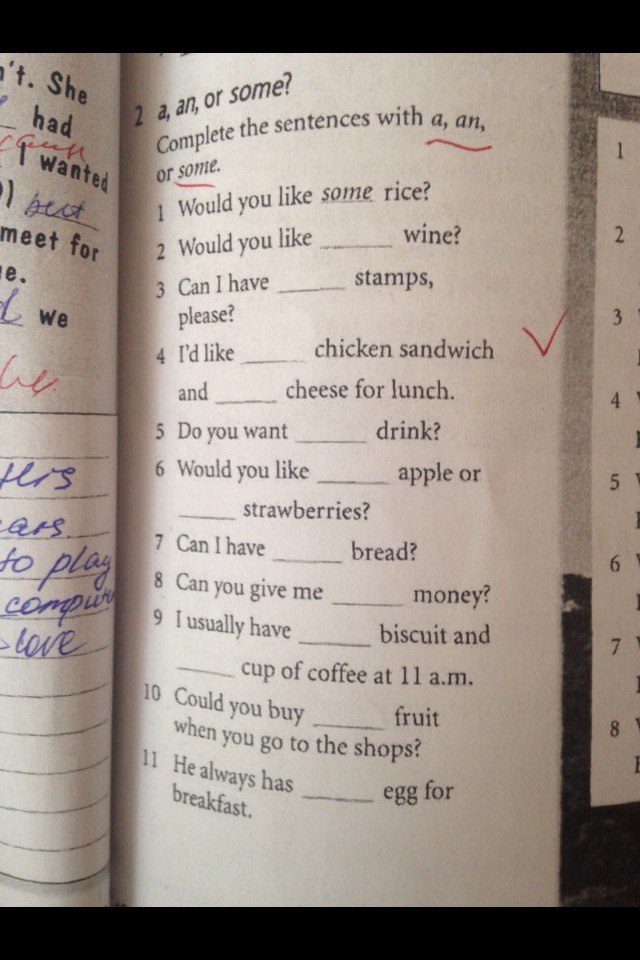 n't. She
had
I wanted
best
meet for
e.
we
he
ters
ears.
to play
compute
love
2 a, an, or some?
Complete the sentences with a, an,
or some.
1 Would you like some rice?
2 Would you like ______ wine?
3 Can I have ______ stamps,
please?
4 I'd like ______ chicken sandwich
and ______ cheese for lunch.
5 Do you want ______ drink?
6 Would you like ______ apple or
______ strawberries?
7 Can I have ______ bread?
8 Can you give me ______ money?
9 I usually have ______ biscuit and
______ cup of coffee at 11 a.m.
10 Could you buy ______ fruit
when you go to the shops?
11 He always has ______ egg for
breakfast.
1
2
3
4
5
6
7
8